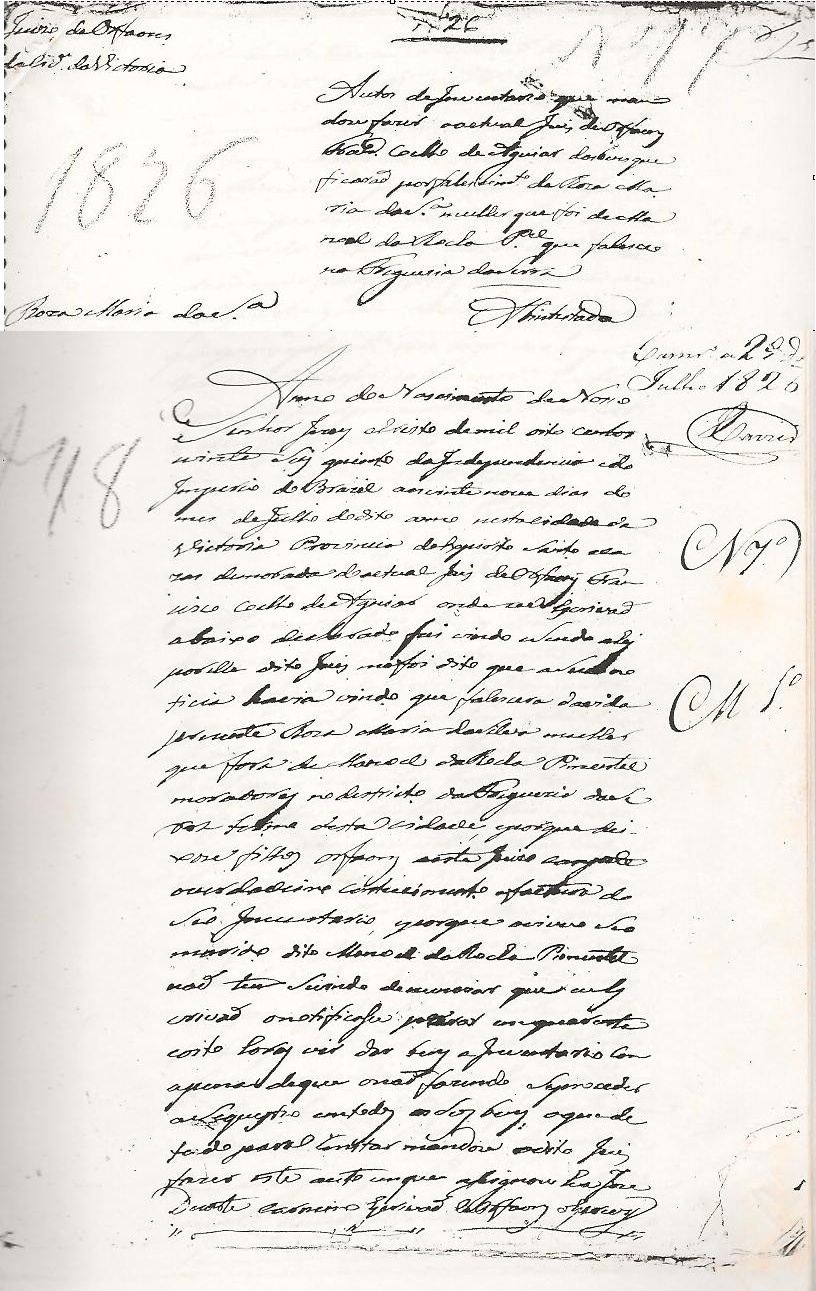 Juizo de Orfaons
da Cid.e da Victoria
1826
Nº 17
Autos de Inventario que man
dou fazer o actual Juis de Orfaons
Fran.co Coelho de Aguiar dos bens que
ficaraõ por falescim.to de Roza Ma
ria da S.a mulher que foi de Ma
noel da Rocha P.tel que falesceo
na Freguezia da Serra
1826
Roza Maria da S.a
Abintestada
29 de
Julho 1826
Anno do Nascimento de Nosso
Senhor Jezus Christo de mil oito centos
vinte e seis quinto da Independencia e do
Imperio do Brazil aos vinte nove dias do
mes de Julho do dito anno nesta Cidade da
Victoria Provincia do Espirito Santo e ca
zas de morada do actual Juis de Orfaons Fran
cisco Coelho de Aguiar onde eu Escrivaõ
abaixo declarado fui vindo e sendo ahi
por elle dito Juis me foi dito que a sua no
ticia havia vindo que falescera da vida
prezente Roza Maria da Silva mulher
que fora de Manoel da Rocha Pimentel
moradores no districto da Freguezia da S
termo desta Cidade, e porque dei
xou filhos orfaons a este Juizo
o conhecimento e factura do
seu Inventario, e porque o viuvo seu
marido dito Manoel da Rocha Pimentel
naõ tem vindo denunciar que eu Es
crivaõ o notificasse para em quarenta
e oito horas vir dar bens a Inventario com
a pena de que o naõ fazendo se proceder
a Sequestro em todos os seos bens, o que de
tudo para constar mandou o dito Juis
fazer este auto em que assignou Eu Joze
Duarte Carneiro Escrivaõ de Orfaons o escrevy
Nº 78
N 7º
M 1º